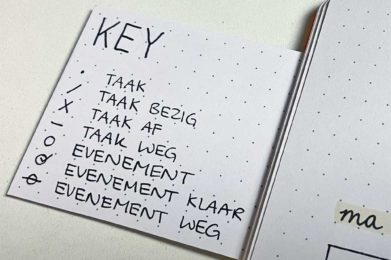 KEY
• TAAK
/ TAAK BEZIG
X TAAK AF
— TAAK WEG
O EVENEMENT
Ø EVENEMENT KLAAR
⊖ EVENEMENT WEG
ma